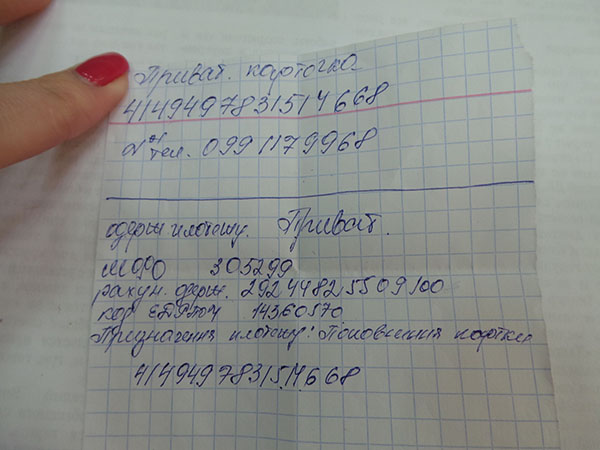 Приват. карточка
4149497831514668
№ тел. 0991179968
одерж платежу. Приват.
МФО 305299
рахун. держ. 29244825509100
код ЄДРПОУ 14360570
Призначення платежу: Поповнення картки
4149497831514668